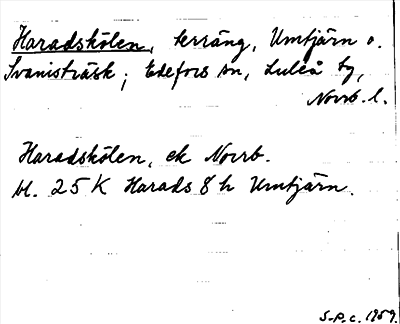 Haradskölen, terräng, Umtjärn o.
Svanisträsk; Edefors sn, Luleå tg,
Norrb. l.
Haradskölen, ek Norrb.
bl. 25 K Harads 8 h Umtjärn.
S-P.c. 1959.